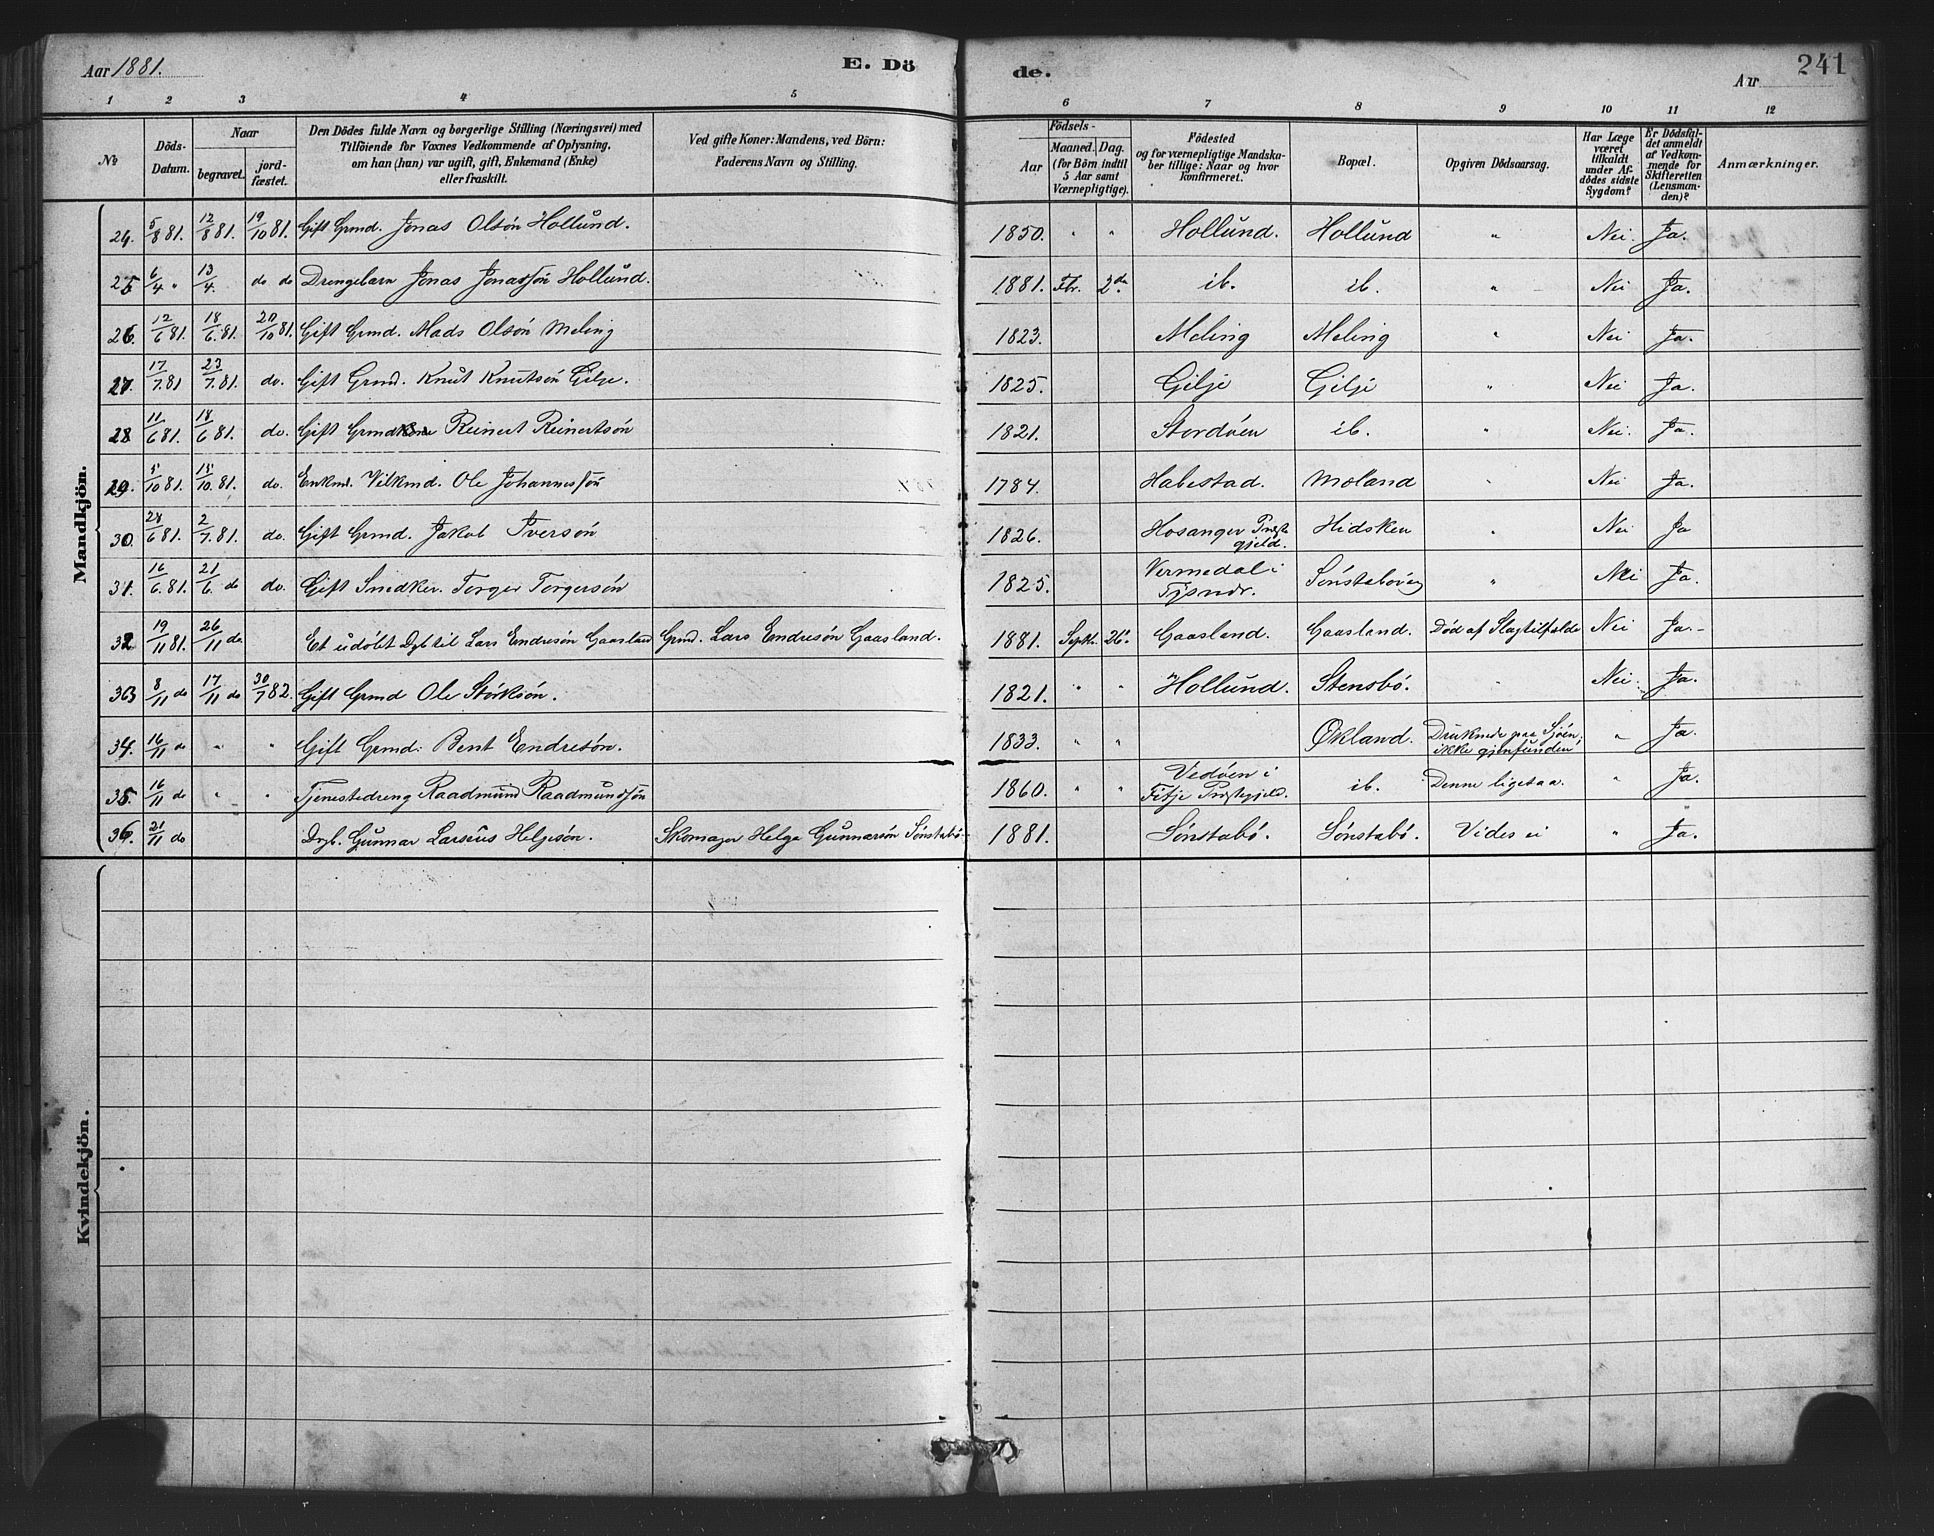 Aar 1881. E. Dö de. Aar 241
1 2 3 4 5 6 7 8 9 10 11 12
No
Döds-Datum.
Naar
begravet.
jord-fæstet.
Den Dödes fulde Navn og borgerlige Stilling (Næringsvei) med
Tilföiende for Voxnes Vedkommende af Oplysning,
om han (hun) var ugift, gift, Enkemand (Enke)
eller fraskilt.
Ved gifte Koner: Mandens, ved Börn:
Faderens Navn og Stilling.
Födsels-
Aar
Maaned. Dag.
(for Börn indtil
5 Aar samt
Værnepligtige).
Födested
og for værnepligtige Mandska-
ber tillige: Naar og hvor
konfirmeret.
Bopæl.
Opgiven Dödsaarsag.
Har Læge
været
tilkaldt
under Af-
dödes sidste
Sygdom?
Er Dödsfal-
det anmeldt
af Vedkom-
mende for
Skifteretten
(Lensman-
den)?
Anmærkninger.
Mandkjön.
24. 5/8 81. 12/8 81. 19/10 81. Gift Grmd. Jonas Olsön Hollund. 1850. " " Hollund. Hollund " Nei. Ja.
25 6/4 " 13/4 do do Drengebarn Jonas Jonassön Hollund. 1881. Fbr. 2den ib. ib. " Nei Ja.
26 12/6 81. 18/6 81. 20/10 81. Gift Grmd. Mads Olsön Meling 1823. Meling Meling " Nei Ja.
27. 17/7 81 23/7 81. do. Gift Grmd. Knut Knutsön Gilje. 1825. Gilje Gilje " Nei Ja.
28 11/6 81. 18/6 81. do. Gift Grmd Reinert Reinertsön 1821. Stordöen ib. " Nei. Ja.
29. 5/10 81. 15/10 81. do. Enkmd. Vilkmd. Ole Johannessön 1784. Habestad. Moland " Nei Ja.
30. 28/6 81. 2/7 81. do. Gift Grmd. Jakob Iversön 1826. Hosanger Præstegjeld. Hidsken " Nei Ja
31. 16/6 81. 21/6 do do. Gift Snedker. Torger Torgersön 1825. Vermedal i Tysnær. Sönstabö " Nei Ja.
32 19/11 81. 26/11 do. Et udöbt Dgb til Lars Endresön Gaasland Grmd. Lars Endresön Gaasland. 1881. Septbr. 26. Gaasland. Gaasland. Död af Slagtilfælde Nei Ja.
33 8/11 do 17/11 do 30/7 82. Gift Grmd Ole Störksön. 1821. " " Hollund. Stensbö. " Nei. Ja.
34. 16/11 do " " Gift Grmd: Bent Endresön. 1833. " " Økland. Druknede paa Sjöen, ikke gjenfunden " Ja.
35. 16/11 do " " Tjenestedreng Raadmund Raadmundsön 1860. " " Vedöen i Fitje Præstegjeld. ib. Denne ligesaa. " Ja.
36. 21/11 do Dgb. Gunnar Larsius Helgesön. Skomager Helge Gunnarsön Sönstabö 1881. Sönstabö. Sönstabö. Vides ei " Ja.
Kvindekjön.